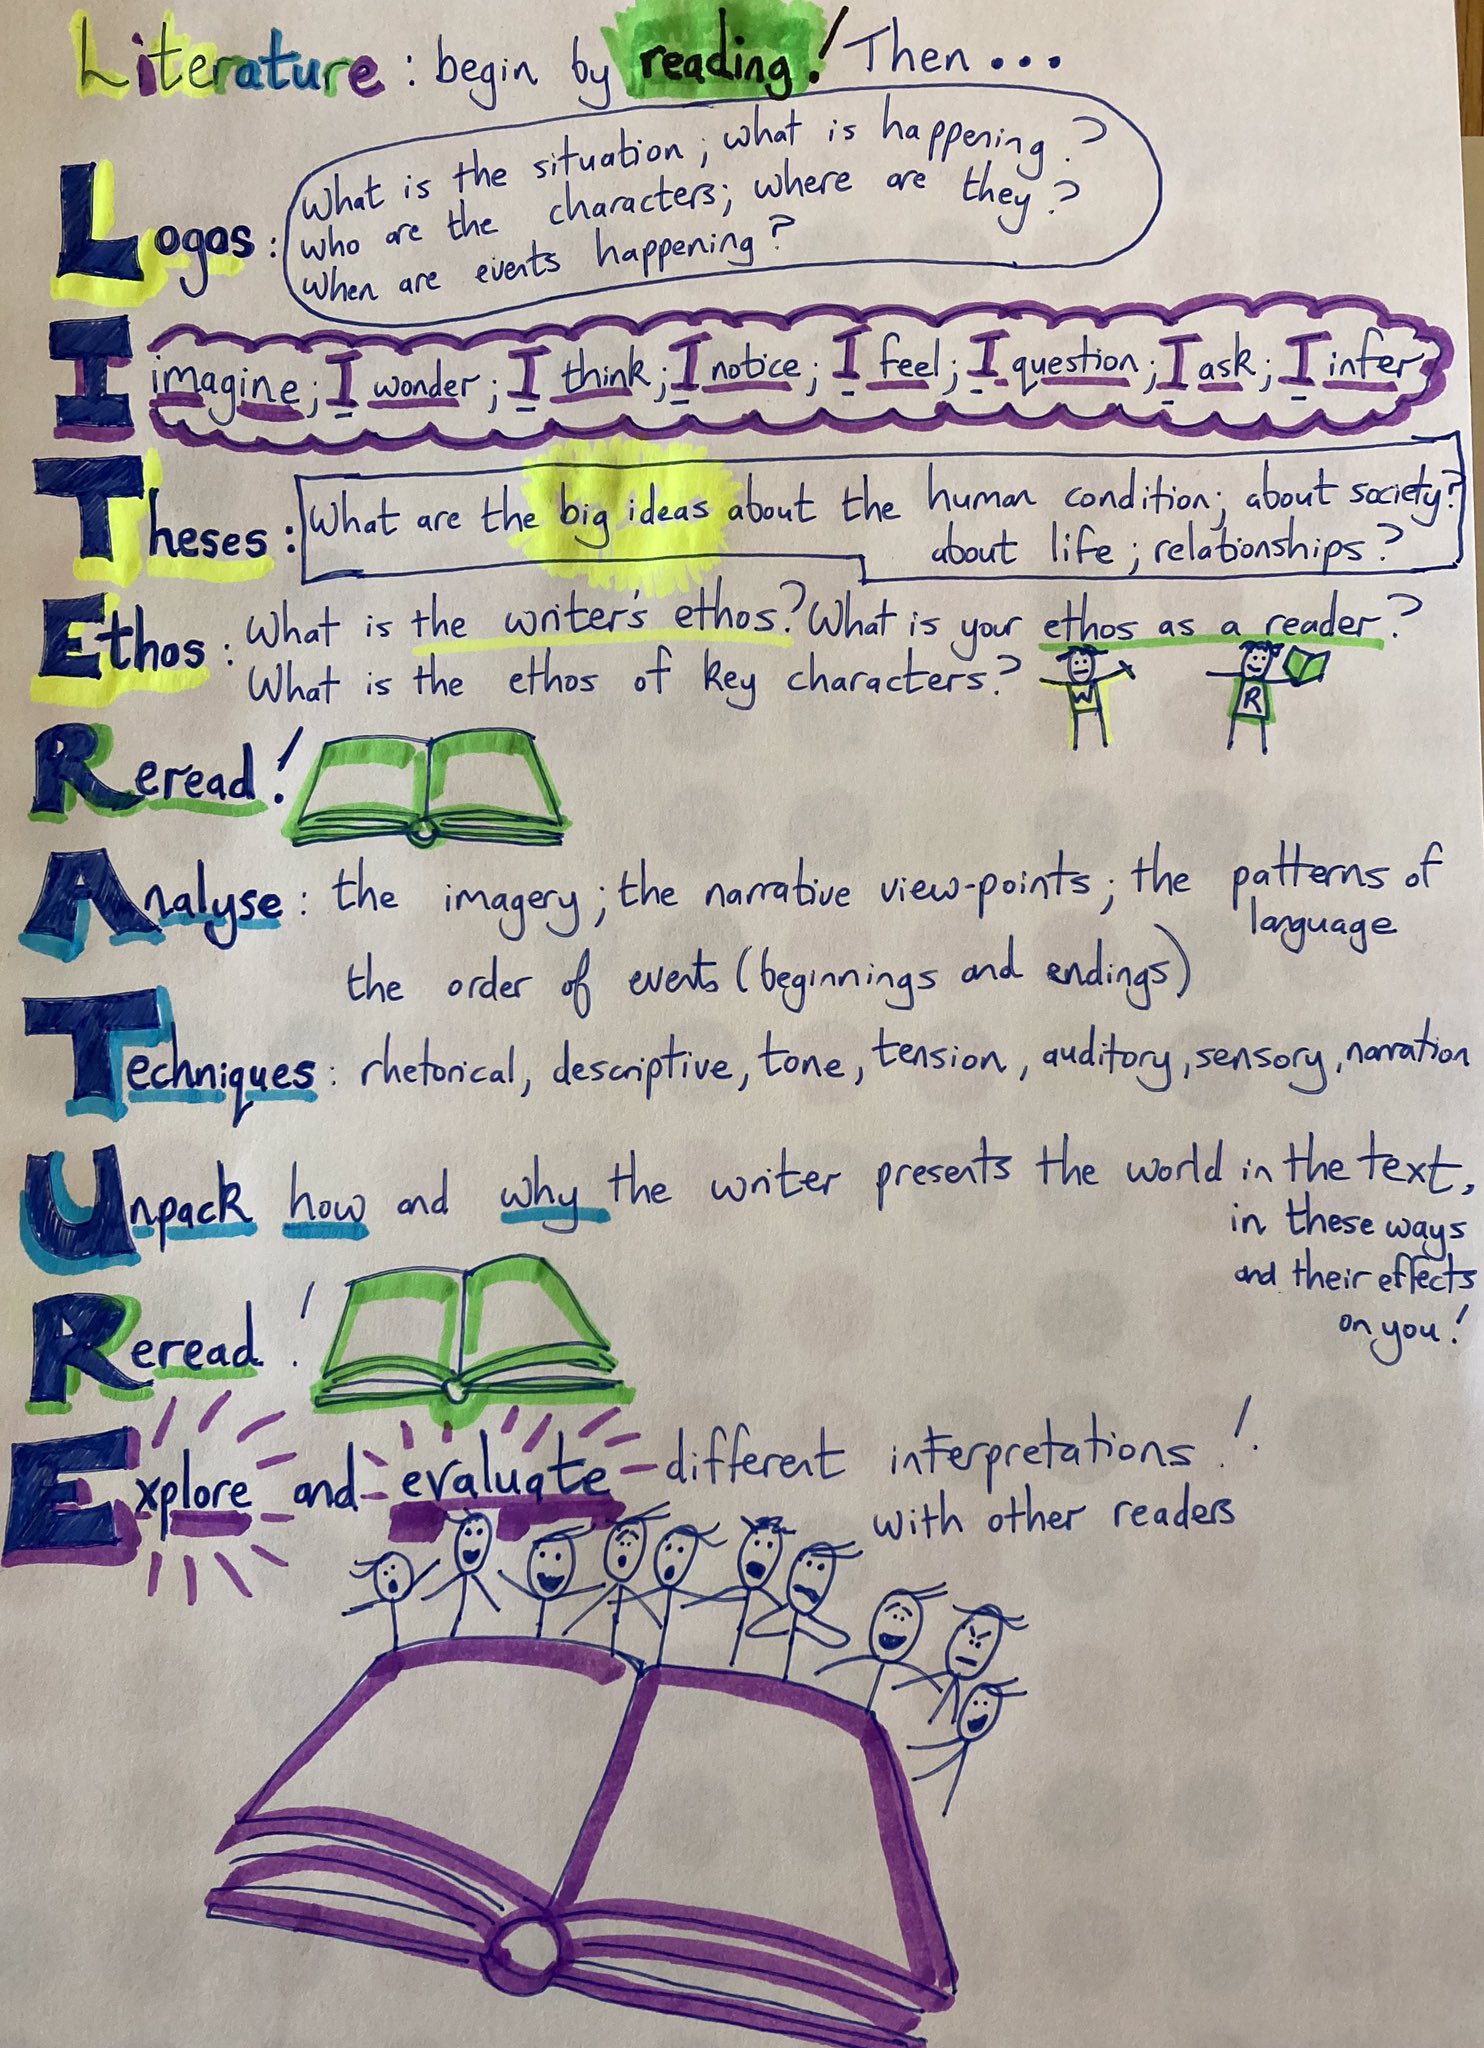 Literature : begin by reading! Then ...
Logos : What is the situation ; what is happening ?
who are the characters; where are they ?
When are events happening ?
I imagine; I wonder ; I think ; I notice ; I feel ; I question ; I ask ; I infer
Theses : What are the big ideas about the human condition; about society?
about life ; relationships ?
Ethos : What is the writer's ethos? What is your ethos as a reader?
What is the ethos of key characters?
W
R
Reread !
Analyse : the imagery ; the narrative view-points ; the patterns of
language
the order of events (beginnings and endings)
Techniques : rhetorical, descriptive, tone, tension, auditory, sensory, narration
Unpack how and why the writer presents the world in the text,
in these ways
and their effects
on you!
Reread !
Explore and evaluate - different interpretations !
with other readers